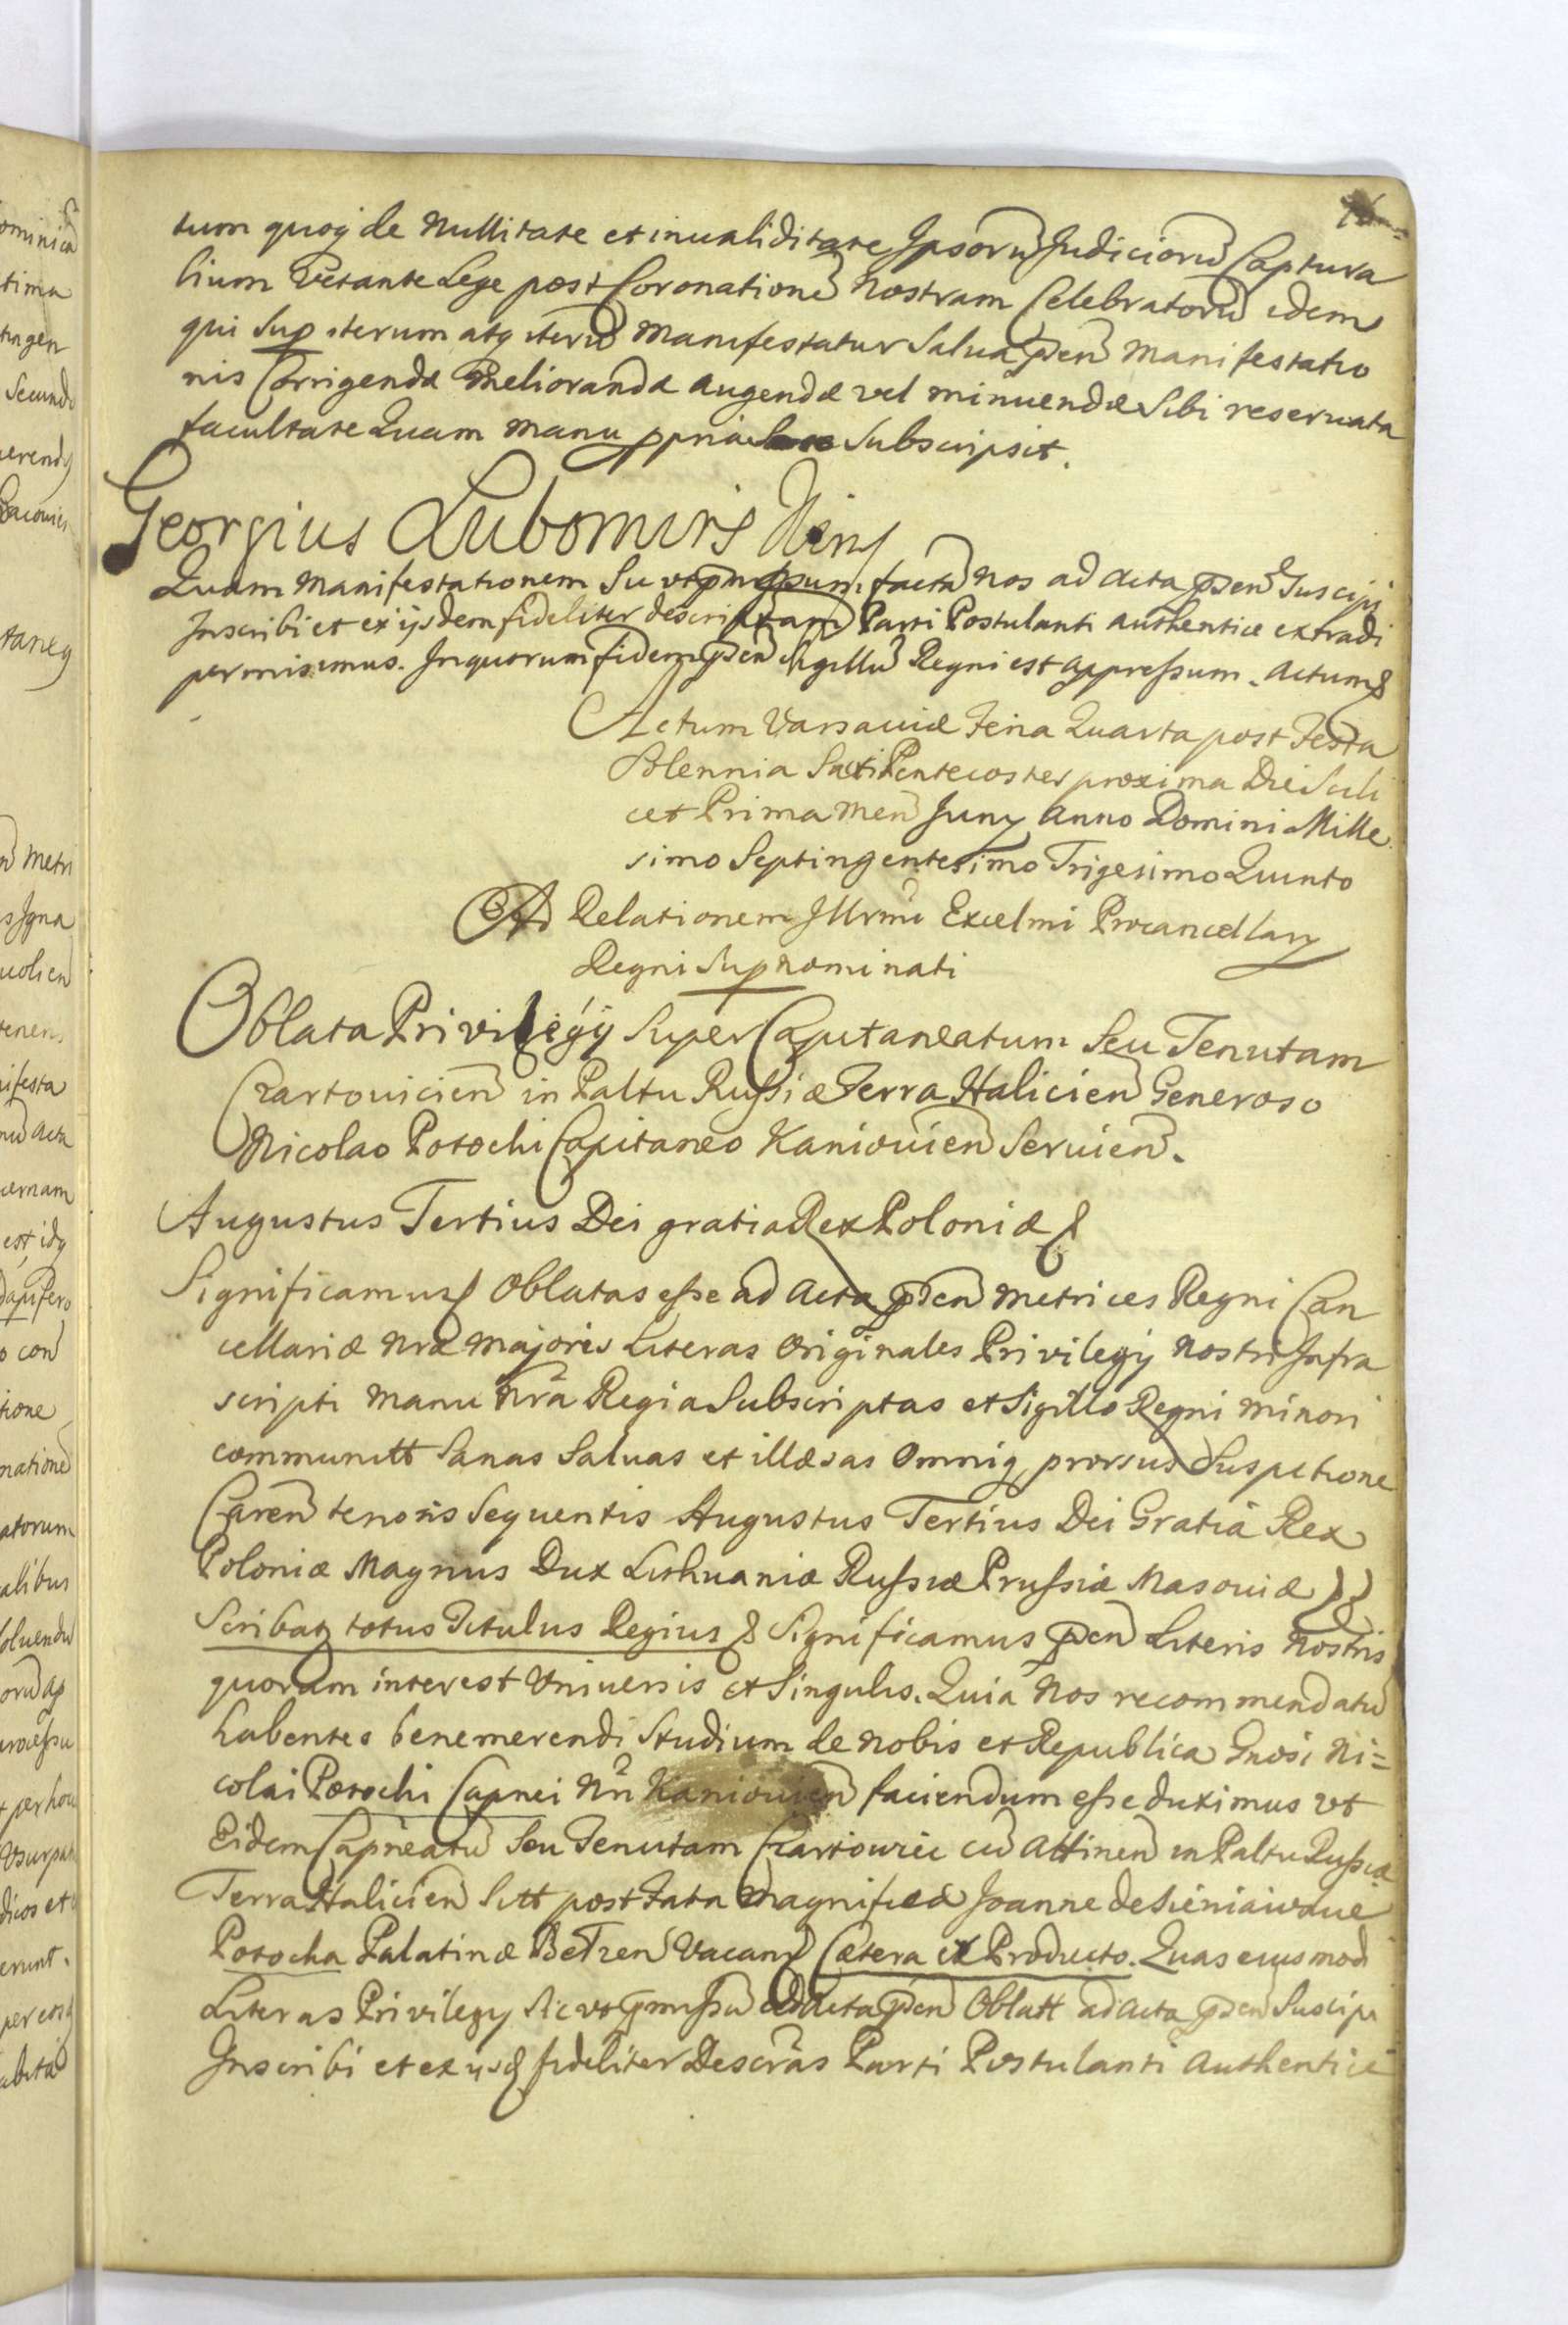 tum quoq de Nullitate et inualiditate Ipsorū Judiciorū Captura
lium Vetante Lege post Coronationē Nostram Celebratorū idem
qui Sup iterum atq iterū Manifestatur Salua p̄sen Manifestatio
nis Corrigendæ Meliorandæ augendæ vel minuendæ Sibi reseruata
facultate Quam manu ppria Subscripsit.
Georgius Lubomirs
Quam Manifestationem factā Nos ad Acta p̄sen Suscipi
Inscribi et ex ijsdem fideliter descriptam Parti Postulanti authentice extradi
permisimus. In quorum fidem p̄sen Sigillū Regni est appressum. Actum
Actum Varsauiæ Feria Quarta post Festa
Solennia Sacri Pentecostes proxima Die Scili
cet Prima Men Junÿ Anno Domini Mille
simo Septingentesimo Trigesimo Quinto
Ad Relationem Illrmi Excelmi Procancellarÿ
Regni Supnominati
Oblata Privilegÿ Super Capitaneatum Seu Tenutam
Czartouicien in Paltu Russiæ Terra Halicien Generoso
Nicolao Potocki Capitaneo Kaniouien Seruien.
Augustus Tertius Dei gratia Rex Poloniæ
Significamus Oblatas esse ad Acta p̄sen Metrices Regni Can
cellariæ Nræ Majoris Literas Originales Privilegÿ Nostri Infra
scripti Manu Nrā Regia Subscriptas et Sigillo Regni Minori
communitt Sanas Saluas et illæsas Omniq prorsus Suspitione
Caren tenoris Sequentis Augustus Tertius Dei Gratia Rex
Poloniæ Magnus Dux Lithuaniæ Russiæ Prussiæ Masouiæ
Scribatz totus Titulus Regius Significamus p̄sen Literis Nostris
quorum interest Vniuersis et Singulis. Quia Nos recommendatū
habentes benemerendi Studium de Nobis et Republica Gnosi Ni=
colai Potocki Capnei Nri Kaniouien faciendum esse duximus vt
Eidem Capneatū Seu Tenutam Czartowiec cū Attinen in Paltu Russiæ
Terra Halicien Sitt post Fata Magnificæ Joanne de Sieniawskie
Potocka Palatinæ Belzen Vacan Cætera ex Producto. Quas eiusmod
Literas Privilegÿ Sic vt ad Acta p̄sen Oblatt ad Acta p̄sen Suscipi
Inscribi et ex ijsd fideliter Descrās Parti Postulanti Authentice